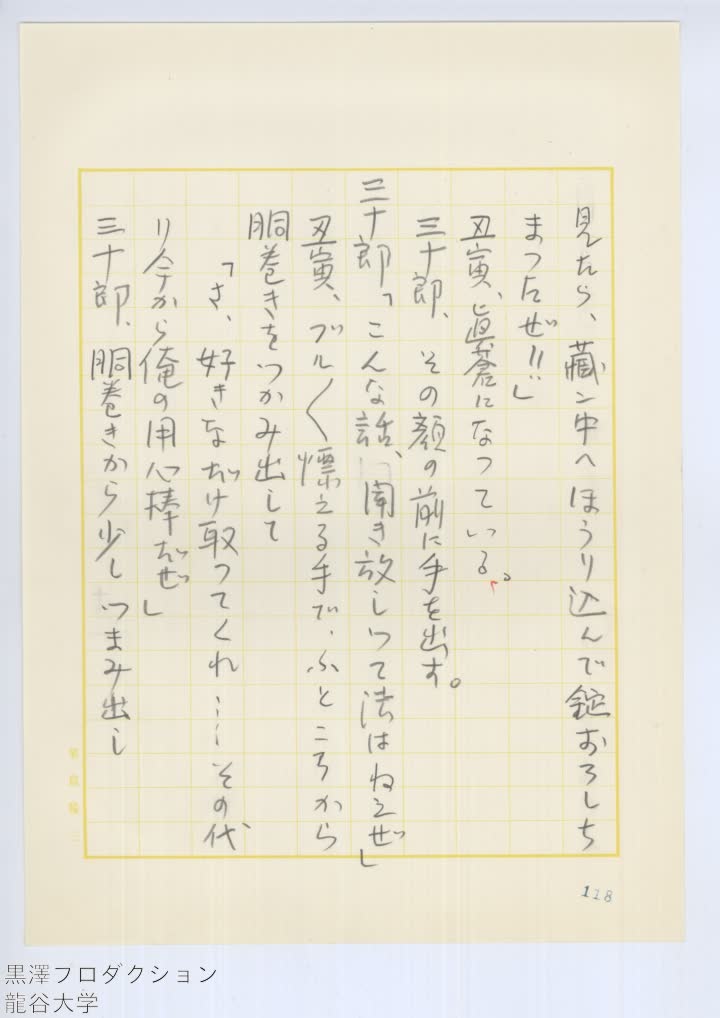 見たら、藏ン中へほうり込んで錠おろしち
まつたぜ!!」
丑寅、眞蒼になつている。
三十郎、その顔の前に手を出す。
三十郎「こんな話、聞き放しつて法はねえぜ」
丑寅、ブル〱慄える手で、ふところから
胴巻きをつかみ出して
「さ、好きなだけ取つてくれ……その代
り今から俺の用心棒だぜ」
三十郎、胴巻きから少しつまみ出し
118
黒澤プロダクション
龍谷大学